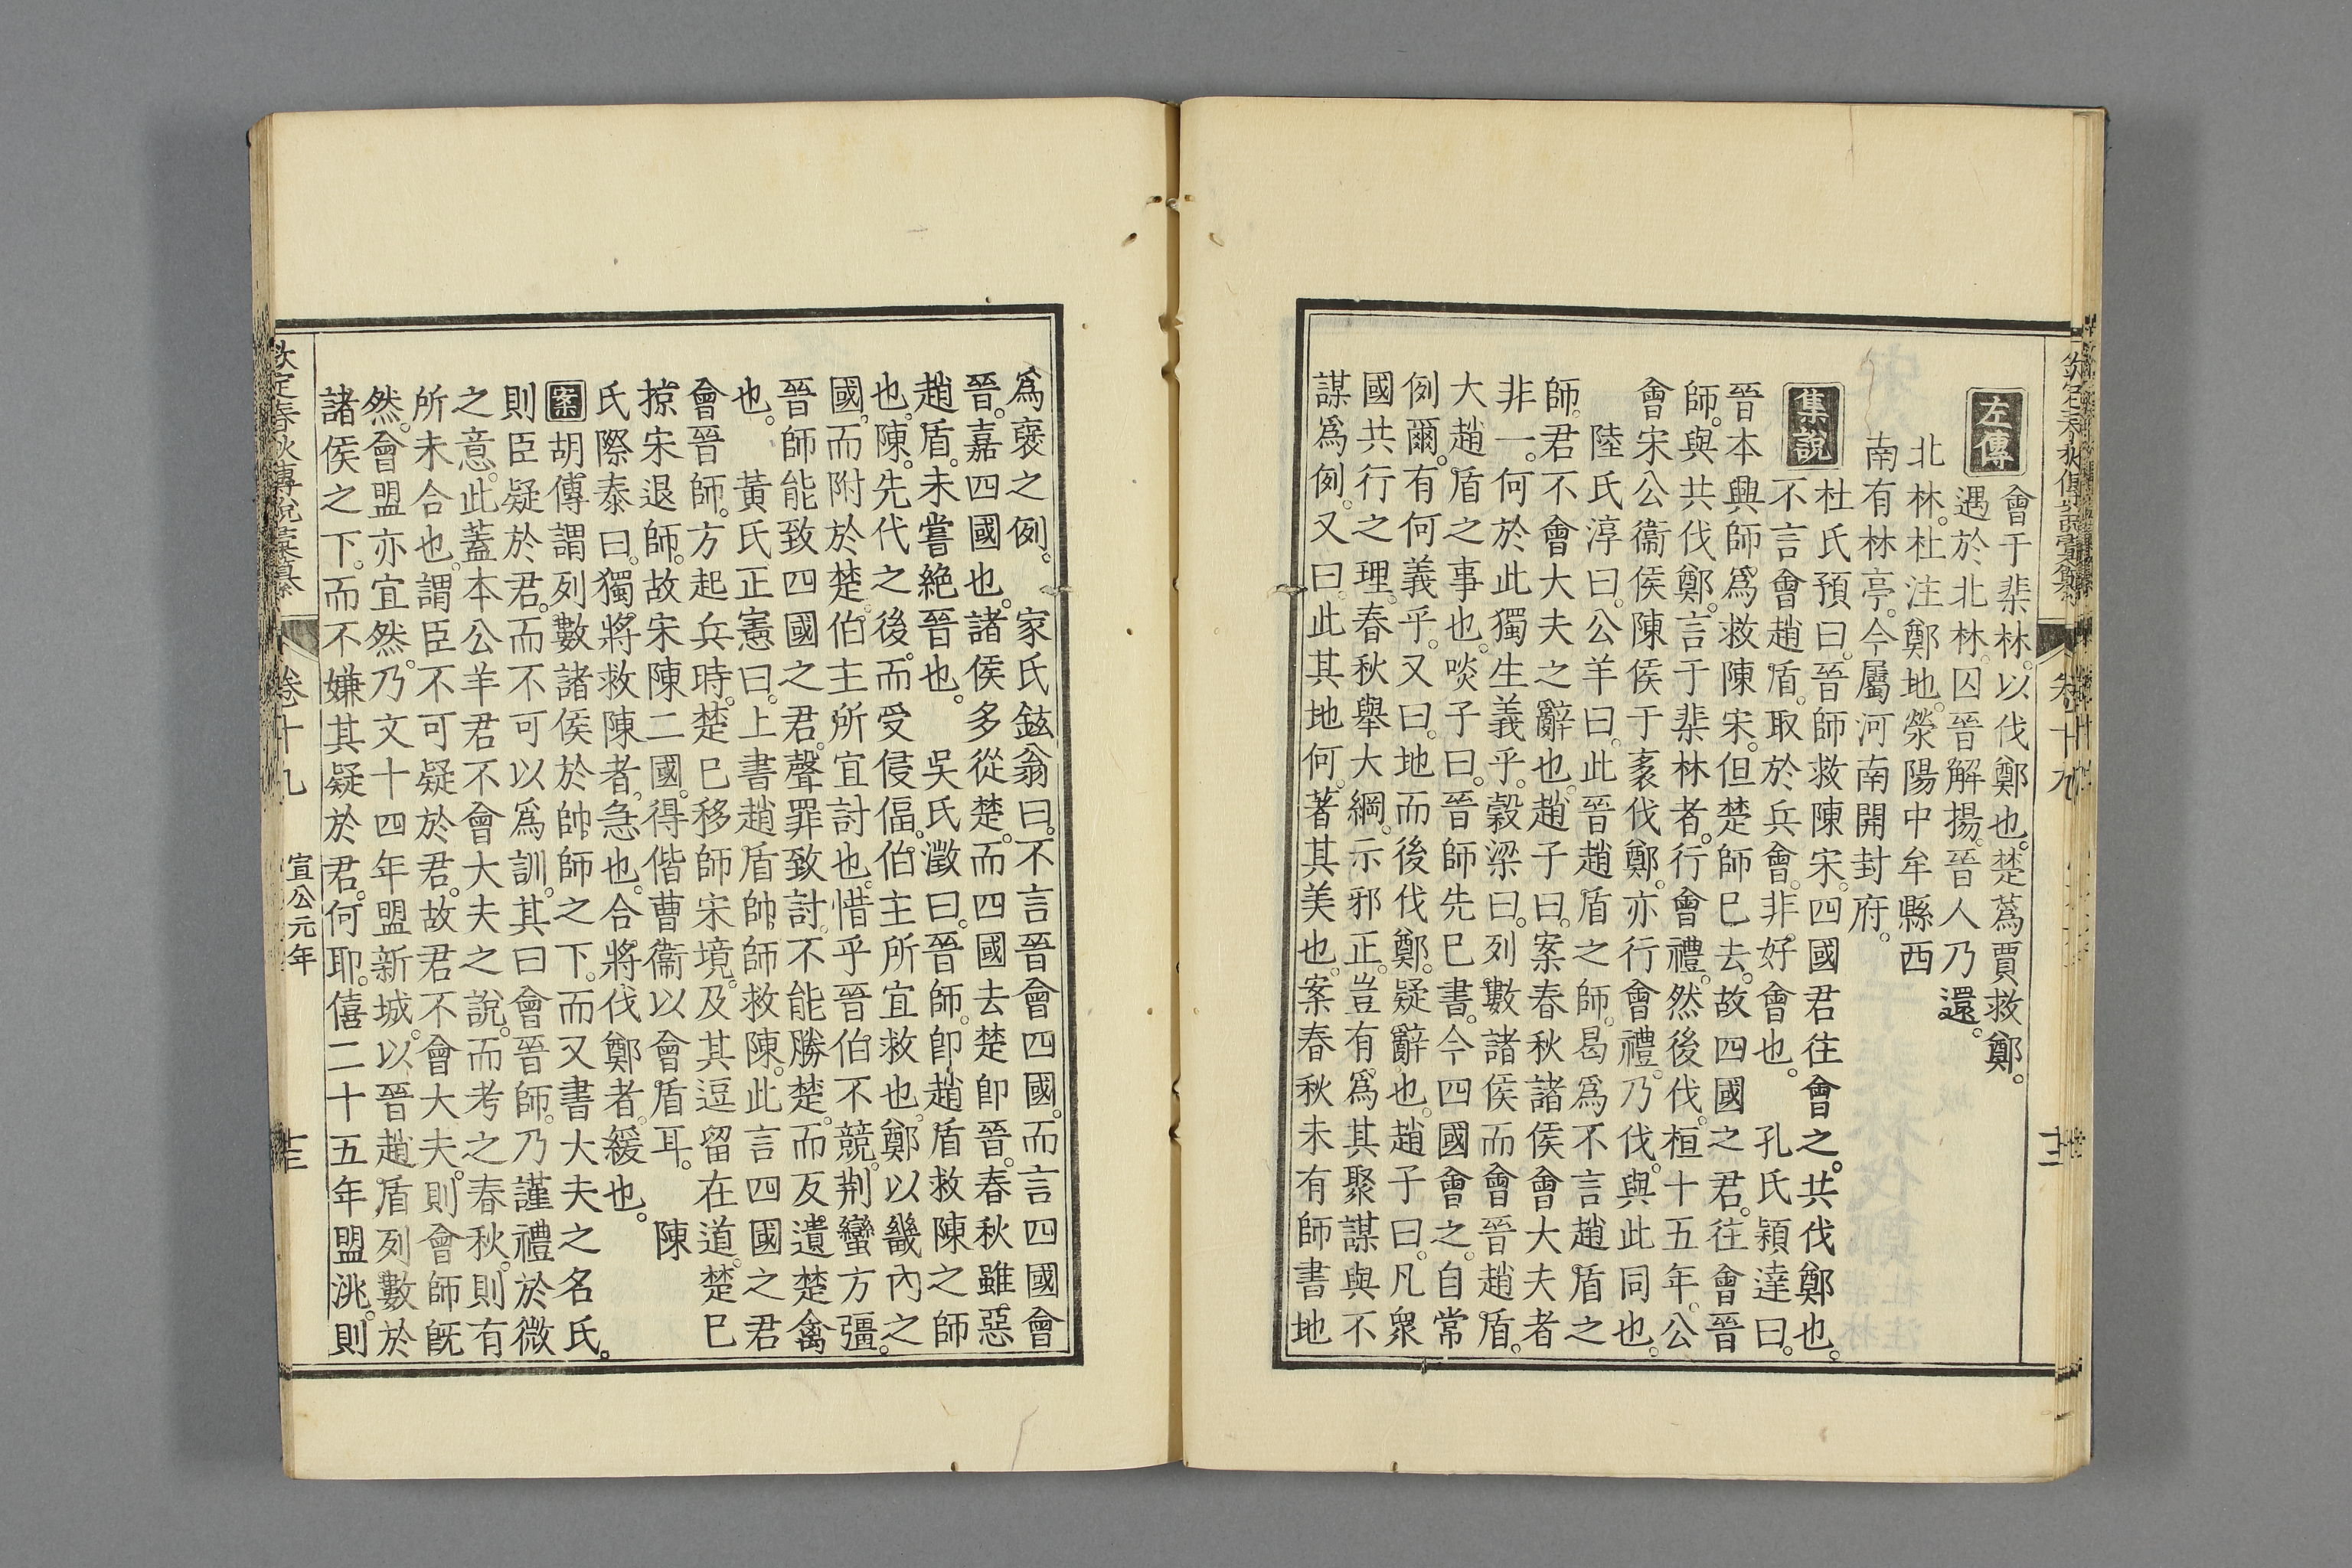 左傳
會于棐林。以伐鄭也。楚蔿賈救鄭。
遇於北林。囚晉解揚。晉人乃還。
北林。杜注鄭地。滎陽中牟縣西
南有林亭。今屬河南開封府。
集說
杜氏預曰。晉師救陳宋。四國君往會之。共伐鄭也。
不言會趙盾。取於兵會。非好會也。 孔氏穎達曰。
晉本興師。爲救陳宋。但楚師巳去。故四國之君。往會晉
師。與共伐鄭。言于棐林者。行會禮。然後伐。桓十五年。公
會宋公衞侯陳侯于袲伐鄭。亦行會禮。乃伐。與此同也。
陸氏淳曰。公羊曰。此晉趙盾之師。曷爲不言趙盾之
師。君不會大夫之辭也。趙子曰。案春秋諸侯會大夫者
非一。何於此獨生義乎。穀梁曰。列數諸侯而會晉趙盾。
大趙盾之事也。啖子曰。晉師先巳書。今四國會之。自常
例爾。有何義乎。又曰。地而後伐鄭。疑辭也。趙子曰。凡衆
國共行之理。春秋舉大綱。示邪正。豈有爲其聚謀與不
謀爲例。又曰。此其地何。著其美也。案春秋未有師書地
爲襃之例。 家氏鉉翁曰。不言晉會四國。而言四國會
晉。嘉四國也。諸侯多從楚。而四國去楚卽晉。春秋雖惡
趙盾。未嘗絶晉也。 吳氏澂曰。晉師。卽趙盾救陳之師
也。陳。先代之後。而受侵偪。伯主所宜救也。鄭以畿內之
國。而附於楚。伯主所宜討也。惜乎晉伯不競。荆蠻方彊。
晉師能致四國之君。聲罪致討。不能勝楚。而反遺楚禽
也。 黃氏正憲曰。上書趙盾帥師救陳。此言四國之君
會晉師。方起兵時。楚巳移師宋境。及其逗留在道。楚巳
掠宋退師。故宋陳二國。得偕曹衞以會盾耳。 陳
氏際泰曰。獨將救陳者。急也。合將伐鄭者。緩也。
案胡傳謂列數諸侯於帥師之下。而又書大夫之名氏。
則臣疑於君。而不可以爲訓。其曰會晉師。乃謹禮於微
之意。此蓋本公羊君不會大夫之說。而考之春秋。則有
所未合也。謂臣不可疑於君。故君不會大夫。則會師旣
然。會盟亦宜然。乃文十四年盟新城。以晉趙盾列數於
諸侯之下。而不嫌其疑於君。何耶。僖二十五年盟洮。則
欽定春秋傳說彙纂
卷十九
宣公元年
十三